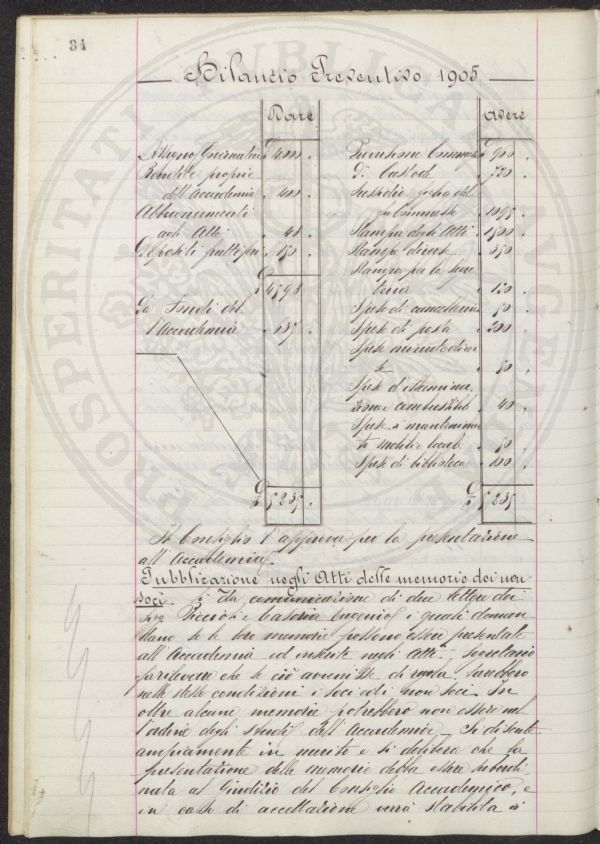 34
Bilancio Preventivo 1905
Dare
Avere
Assegno Governativo £ 4000 .
Rendite proprie
dell'Accademia . 400 .
Abbuonamenti
agli Atti . 48 .
Depositi fruttiferi . 150 .
£ 4598
Da Fondi del
l'Accademia . 637 .
£ 5235 .
£ 960 .
di Custode . 720 .
Sussidio
. 1095 .
Stampa degli Atti . 1500 .
Stampe diverse . 350 .
Stampa per la Segre
teria . 120 .
Spese di cancelleria . 50 .
Spese di posta . 200 .
Spese minute diver
se . 50 .
Spese d'illumina
zione e combustibile . 40 .
Spese di mantenimen
to mobili e locali . 50 .
Spese di biblioteca . 100 .
£ 5235 .
Il Consiglio l'approva per la presentazione
all'Accademia.
Pubblicazione negli Atti delle memorie dei non
soci. Si dà comunicazione di due lettere dei
Sigg. Piccioli e Casoria Eugenio i quali doman
dano se le loro memorie possono essere presentate
all'Accademia ed inserite negli Atti. Segretario
fa rilevare che se ciò avvenisse di regola sarebbero
nelle stesse condizioni i soci ed i non soci. In
oltre alcune memorie potrebbero non essere nel
l'ordine degli studi dell'Accademia. Si discute
ampiamente in merito e si delibera che la
presentazione delle memorie debba essere subordi
nata al giudizio del Consiglio Accademico, e
in caso di accettazione verrà stabilita